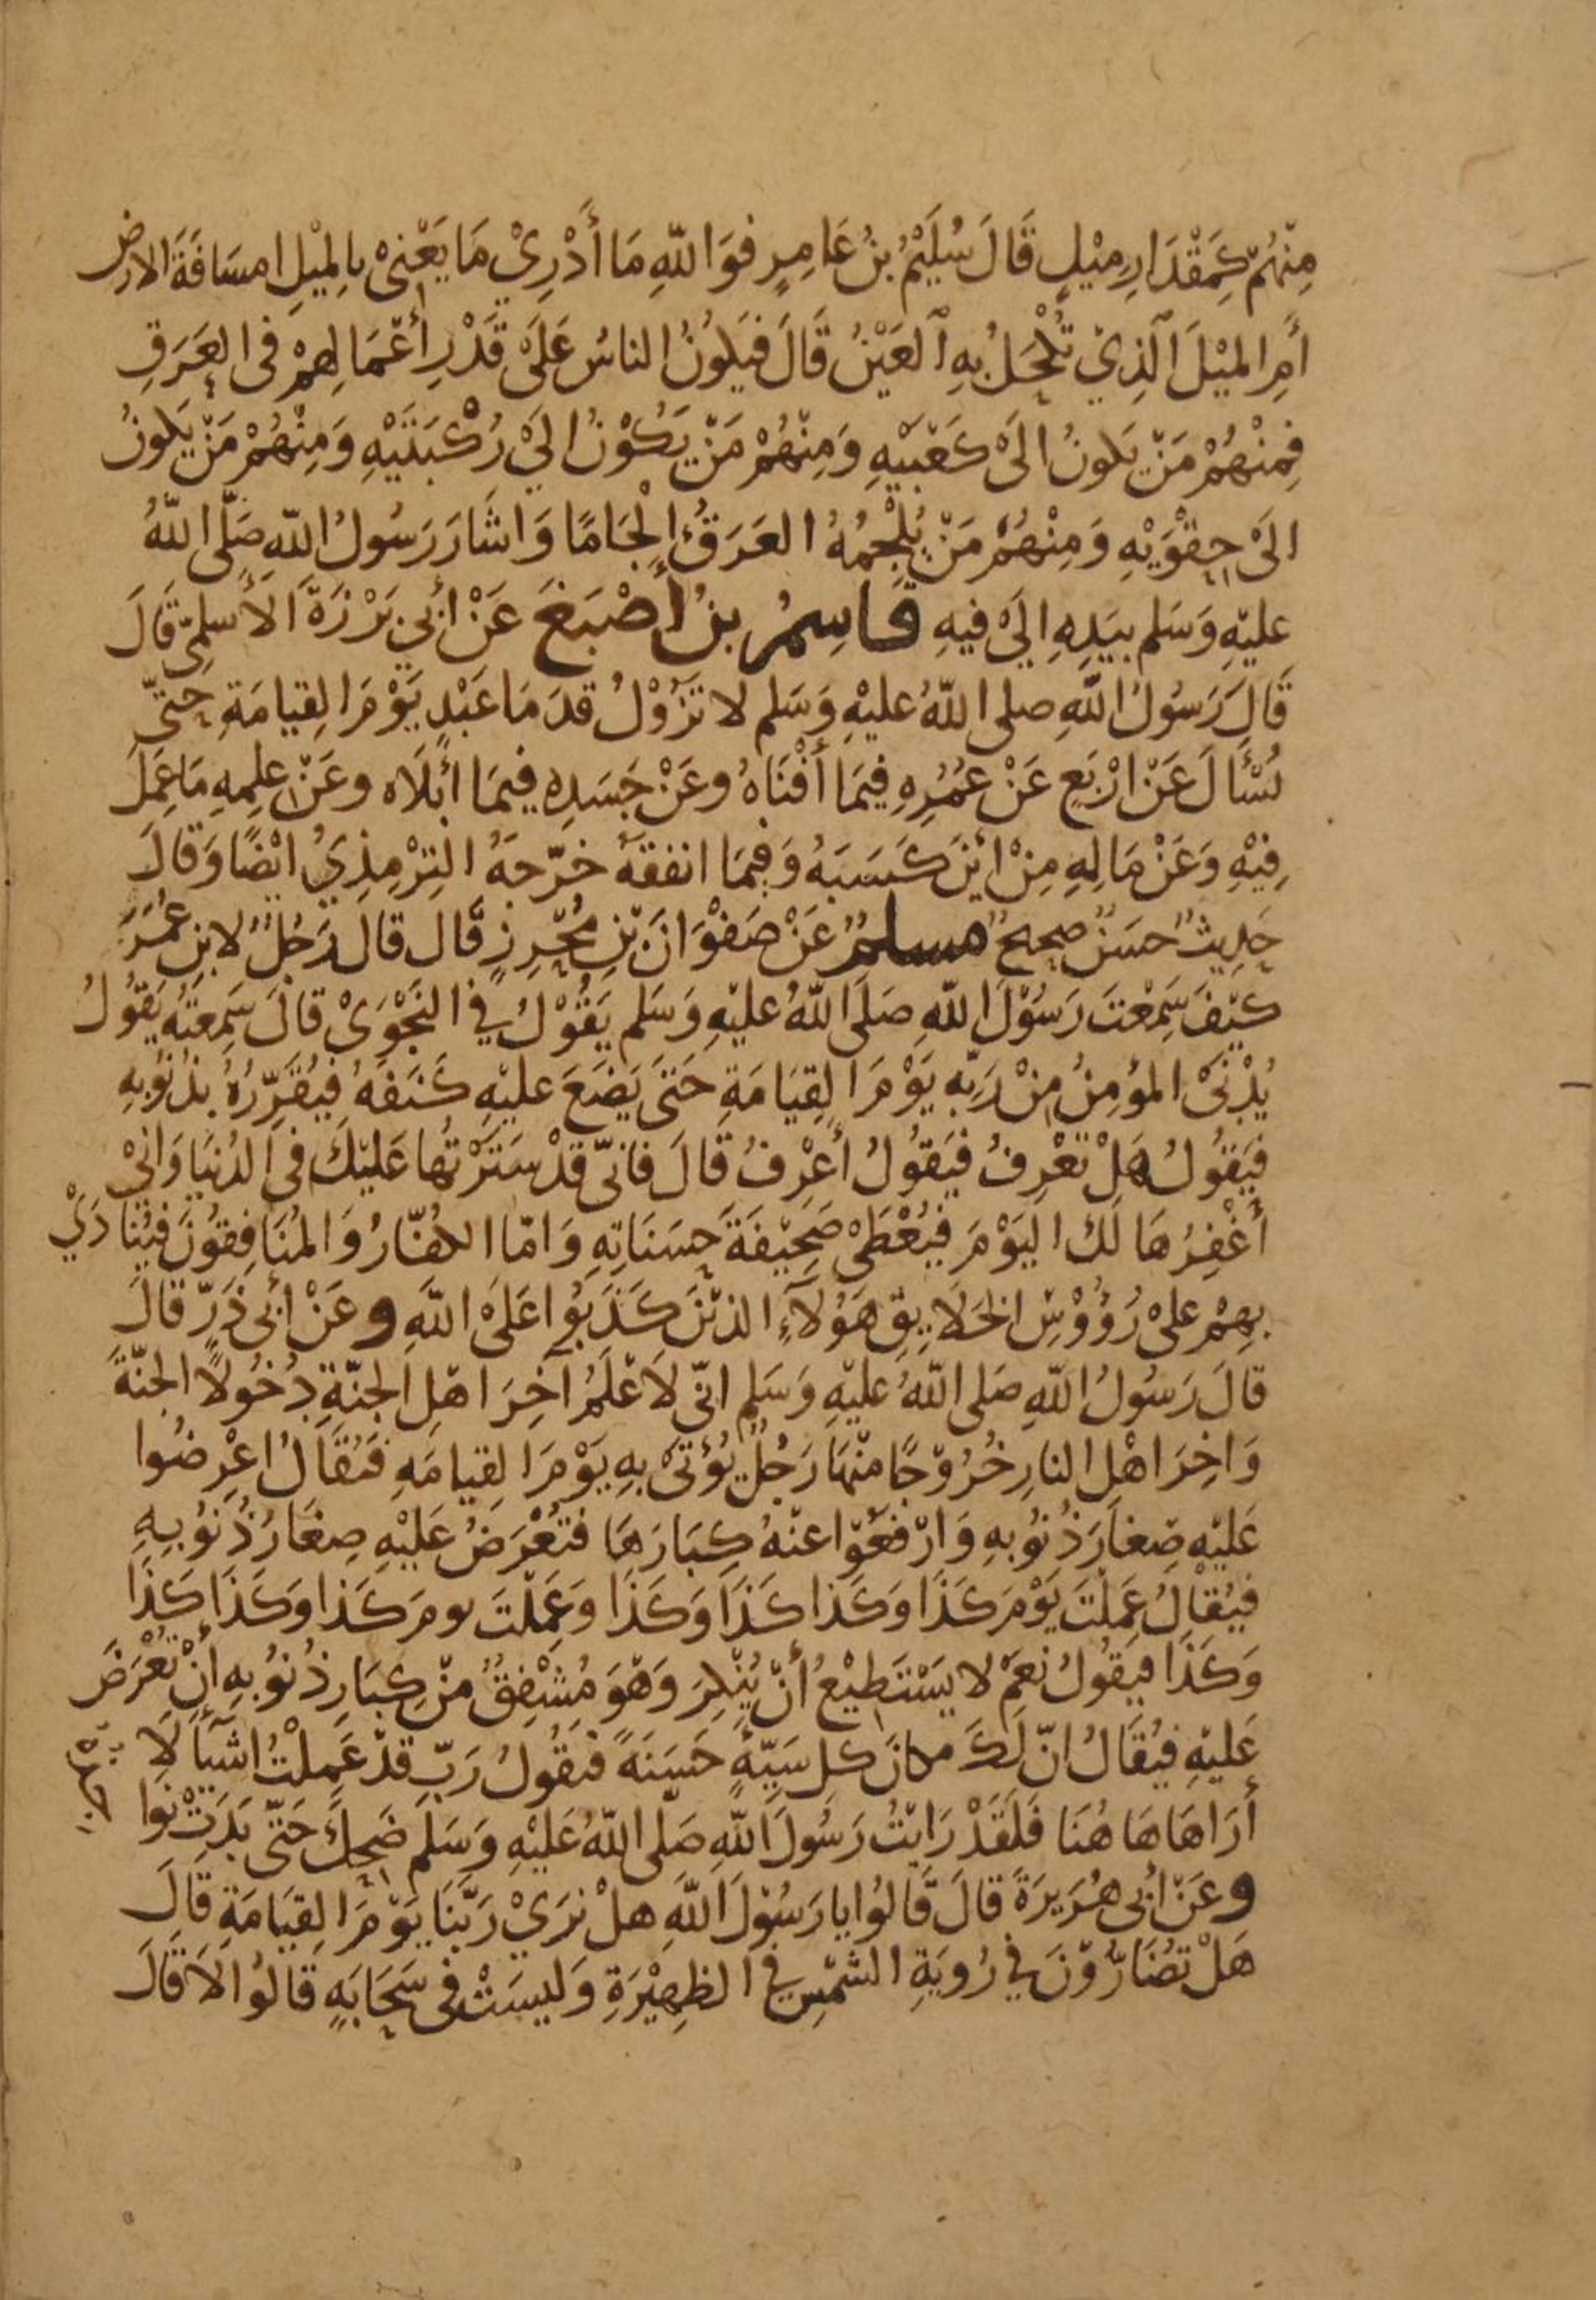 مِنْهُمْ كَمِقْدَارِ مِيْلٍ قَالَ سُلَيْمُ بنُ عَامِرٍ فوَاللّهِ مَا أَدْرِيْ مَا يَعْنِىْ بِالمِيْلِ امسَافَةَ الارض
أمِ المِيْلَ الَّذِيْ تُكْحَلُ بِهِ العَيْنُ قَالَ فَيَكُونُ الناسُ عَلَىْ قَدْرِ أعْمَالِهِمْ فى العَرَقِ
فَمِنْهُمْ مَنْ يَكونُ الَىْ كَعْبَيْهِ وَمِنْهُمْ مَنْ يَكُوْنُ الَيْ رُكْبَتَيْهِ وَمِنْهُمْ مَنْ يَكونُ
الَىْ حِقْوَيْهِ وَمِنْهُمْ مَنْ يُلْجِمُهُ العَرَقُ الْجَامًا وَاشَارَ رَسُولُ اللّهِ صَلَّى اللّهُ
عليْهِ وَسَلم بيَدِهِ الَىْ فيهِ قَاسِمُ بنُ أَصْبَغَ عَنْ أبى بَرْزَةَ الأَسلمِىّ قَالَ
قَالَ رَسُولُ اللّهِ صلى اللّهُ عليْهِ وَسَلم لا تَزُوْلُ قدَمَا عَبْدٍ يَوْمَ القِيامَةِ حتىّ
يُسْأَلَ عَنْ ارْبَعٍ عَنْ عُمُرِهِ فِيَمَا أفْنَاهُ وعَنْ جَسَدِهِ فيمَا ابْلَاه وعَنْ علِمِهِ مَا عَمِلَ
فِيْهِ وَعَنْ مَالِهِ مِنْ ايْنَ كَسَبَهُ وَفِيمَا انفقهُ خرّجهُ التِرْمِذِيُ ايْضًا وَقالَ
حَدِيثٌ حسَنٌ صحيحٌ مسلمٌ عَنْ صَفْوَانَ بْنِ مُحْرِزٍ قَال قال رَجُلٌ لابنِ عُمَرَ
كَيْفَ سَمِعْتَ رَسُوْلَ اللّهِ صَلَى اللّهُ عليْهِ وَسَلم يَقُوْلُ فِي النَجْوَىْ قالَ سَمِعتُهُ يَقُولُ
يُدْنَىْ المؤمِنُ مِنْ رَبّهِ يَوْمَ القِيَامَةِ حَتىَ يَضَعَ عليْهِ كَنَفَهُ فيُقَرِّرُهُ بذنُوبِهِ
فيَقُولُ هَلْ تعْرِفُ فيَقُولُ أعْرِفُ قَالَ فانىّ قدْ سَتَرْتُها عَليْكَ فى الدُنيَا وَانيْ
أغْفِرُهَا لَك اليَوْمَ فيُعْطَىْ صَحِيْفَةَ حَسَنَاتِهِ وَامّا الكفّارُ وَالمُنَافِقُوْنَ فيُنادَيْ
بهِمْ علىْ رُؤُوْسِ الخَلَايِقِ هَؤُلَآءِ الذيْنَ كَذَبُوا عَلَىْ اللّهِ وعَنْ أبى ذَرّ قالَ
قالَ رَسُولُ اللّهِ صَلى اللّهُ عليْهِ وَسَلم انىّ لَأعْلَمُ آخِرَ اهْلِ الجنّةِ دُخُولاً الجنّةَ
وَاخِرَ اهْلِ النارِ خُرُوْجًا مِنْهَا رَجُلٌ يُؤتىْ بِهِ يَوْمَ القِيامَهِ فَيُقَالُ اعْرِضُوا
عَليْهِ صِغارَ ذُنُوبِهِ وَارْفعُوْا عنْهُ كِبَارَهَا فتُعْرَضُ عَليْهِ صِغَارُ ذُنوُبِهِ
فيُقالُ عَمِلْتَ يَوْمَ كَذَا وَكَذا كَذَا وَكَذَا وَعَمِلْتَ يومَ كَذا وَكَذَا كَذَا
وَكَذَا فيَقُولُ نعَمْ لا يَسْتَطِيْعُ أنْ يُنْكِرَ وَهْوَ مُشْفِقٌ مِنْ كِبَارِ ذُنوُبِهِ أنْ تعْرَضَ
عَليْهِ فيُقَالُ انّ لَكَ مكانَ كل سَيّئةٍ حَسَنَةً فيَقُولُ رَبّ قدْ عَمِلْتُ اشيَآءَ لَا
أَرَاهَا هَا هُنَا فَلَقَدْ رَايْتُ رَسُولَ اللّهِ صَلّى اللّهُ عَليْهِ وَسَلم ضَحِكَ حَتّى بَدَتْ نوا
وعَنْ أبى هُرَيرَةَ قالَ قَالُوا يا رَسُوْلَ اللّهِ هلْ نرَيْ رَبَّنَا يَوْمَ القِيَامَةِ قَالَ
هَلْ تضَارُّوْنَ فِي رُويَةِ الشَمْسِ فِي الظهِيْرَةِ وَليسَتْ فى سَحَابَهٍ قالُوا لَا قَالَ